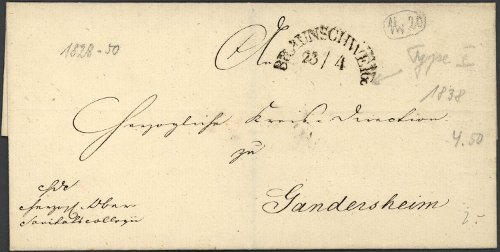 1828-50
An
BRAUNSCHWEIG
23/4
Type I
1838
4.50
Herzogliche Kreis-Direction
zu
Gandersheim
Herzogl. Ober
Sanitätscollegii
2-